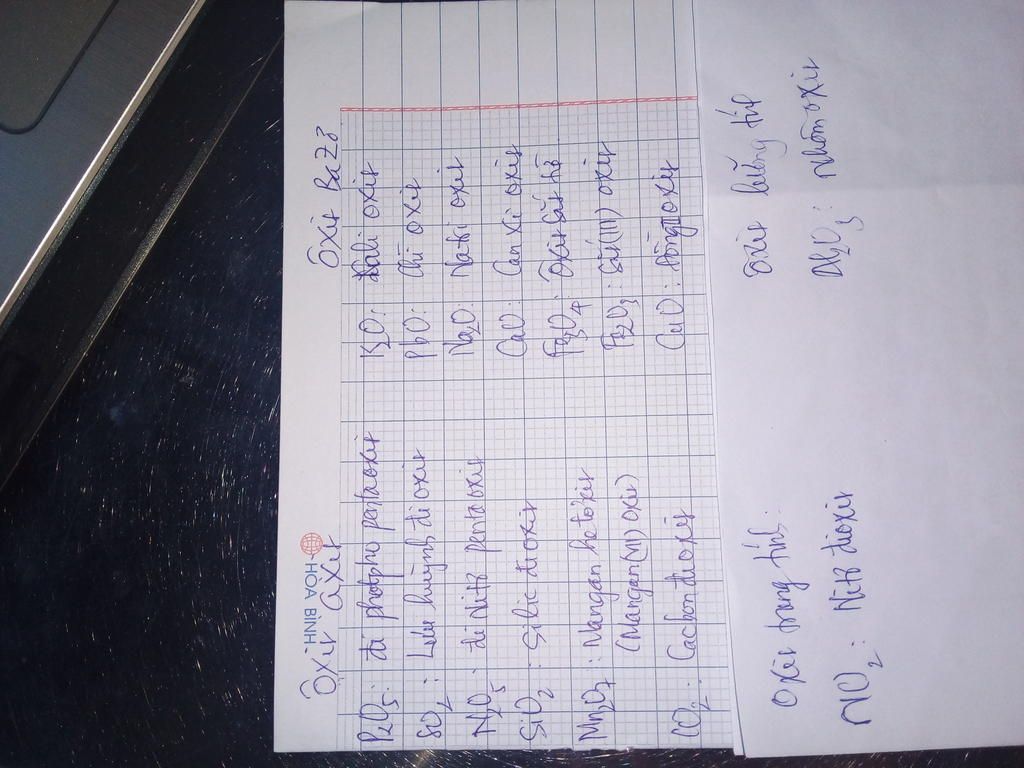 HOA BINH
Ôxit axit
P2O5: đi photpho pentaoxit
SO2: Lưu huỳnh đi oxit
N2O5: đi Nitơ pentaoxit
SiO2: Silic đioxit
Mn2O7: Mangan hetoxit
(Mangan(VII) oxit)
CO2: Cacbon đioxit
Ôxit Bazơ
K2O: Kali oxit
PbO: chì oxit
Na2O: Natri oxit
CaO: Can xi oxit
Fe3O4: Ôxit sắt từ
Fe2O3: Sắt(III) oxit
CuO: Đồng(II) oxit
Oxit trung tính:
NO2: Nitơ đioxit
Ôxit lưỡng tính
Al2O3: Nhôm oxit